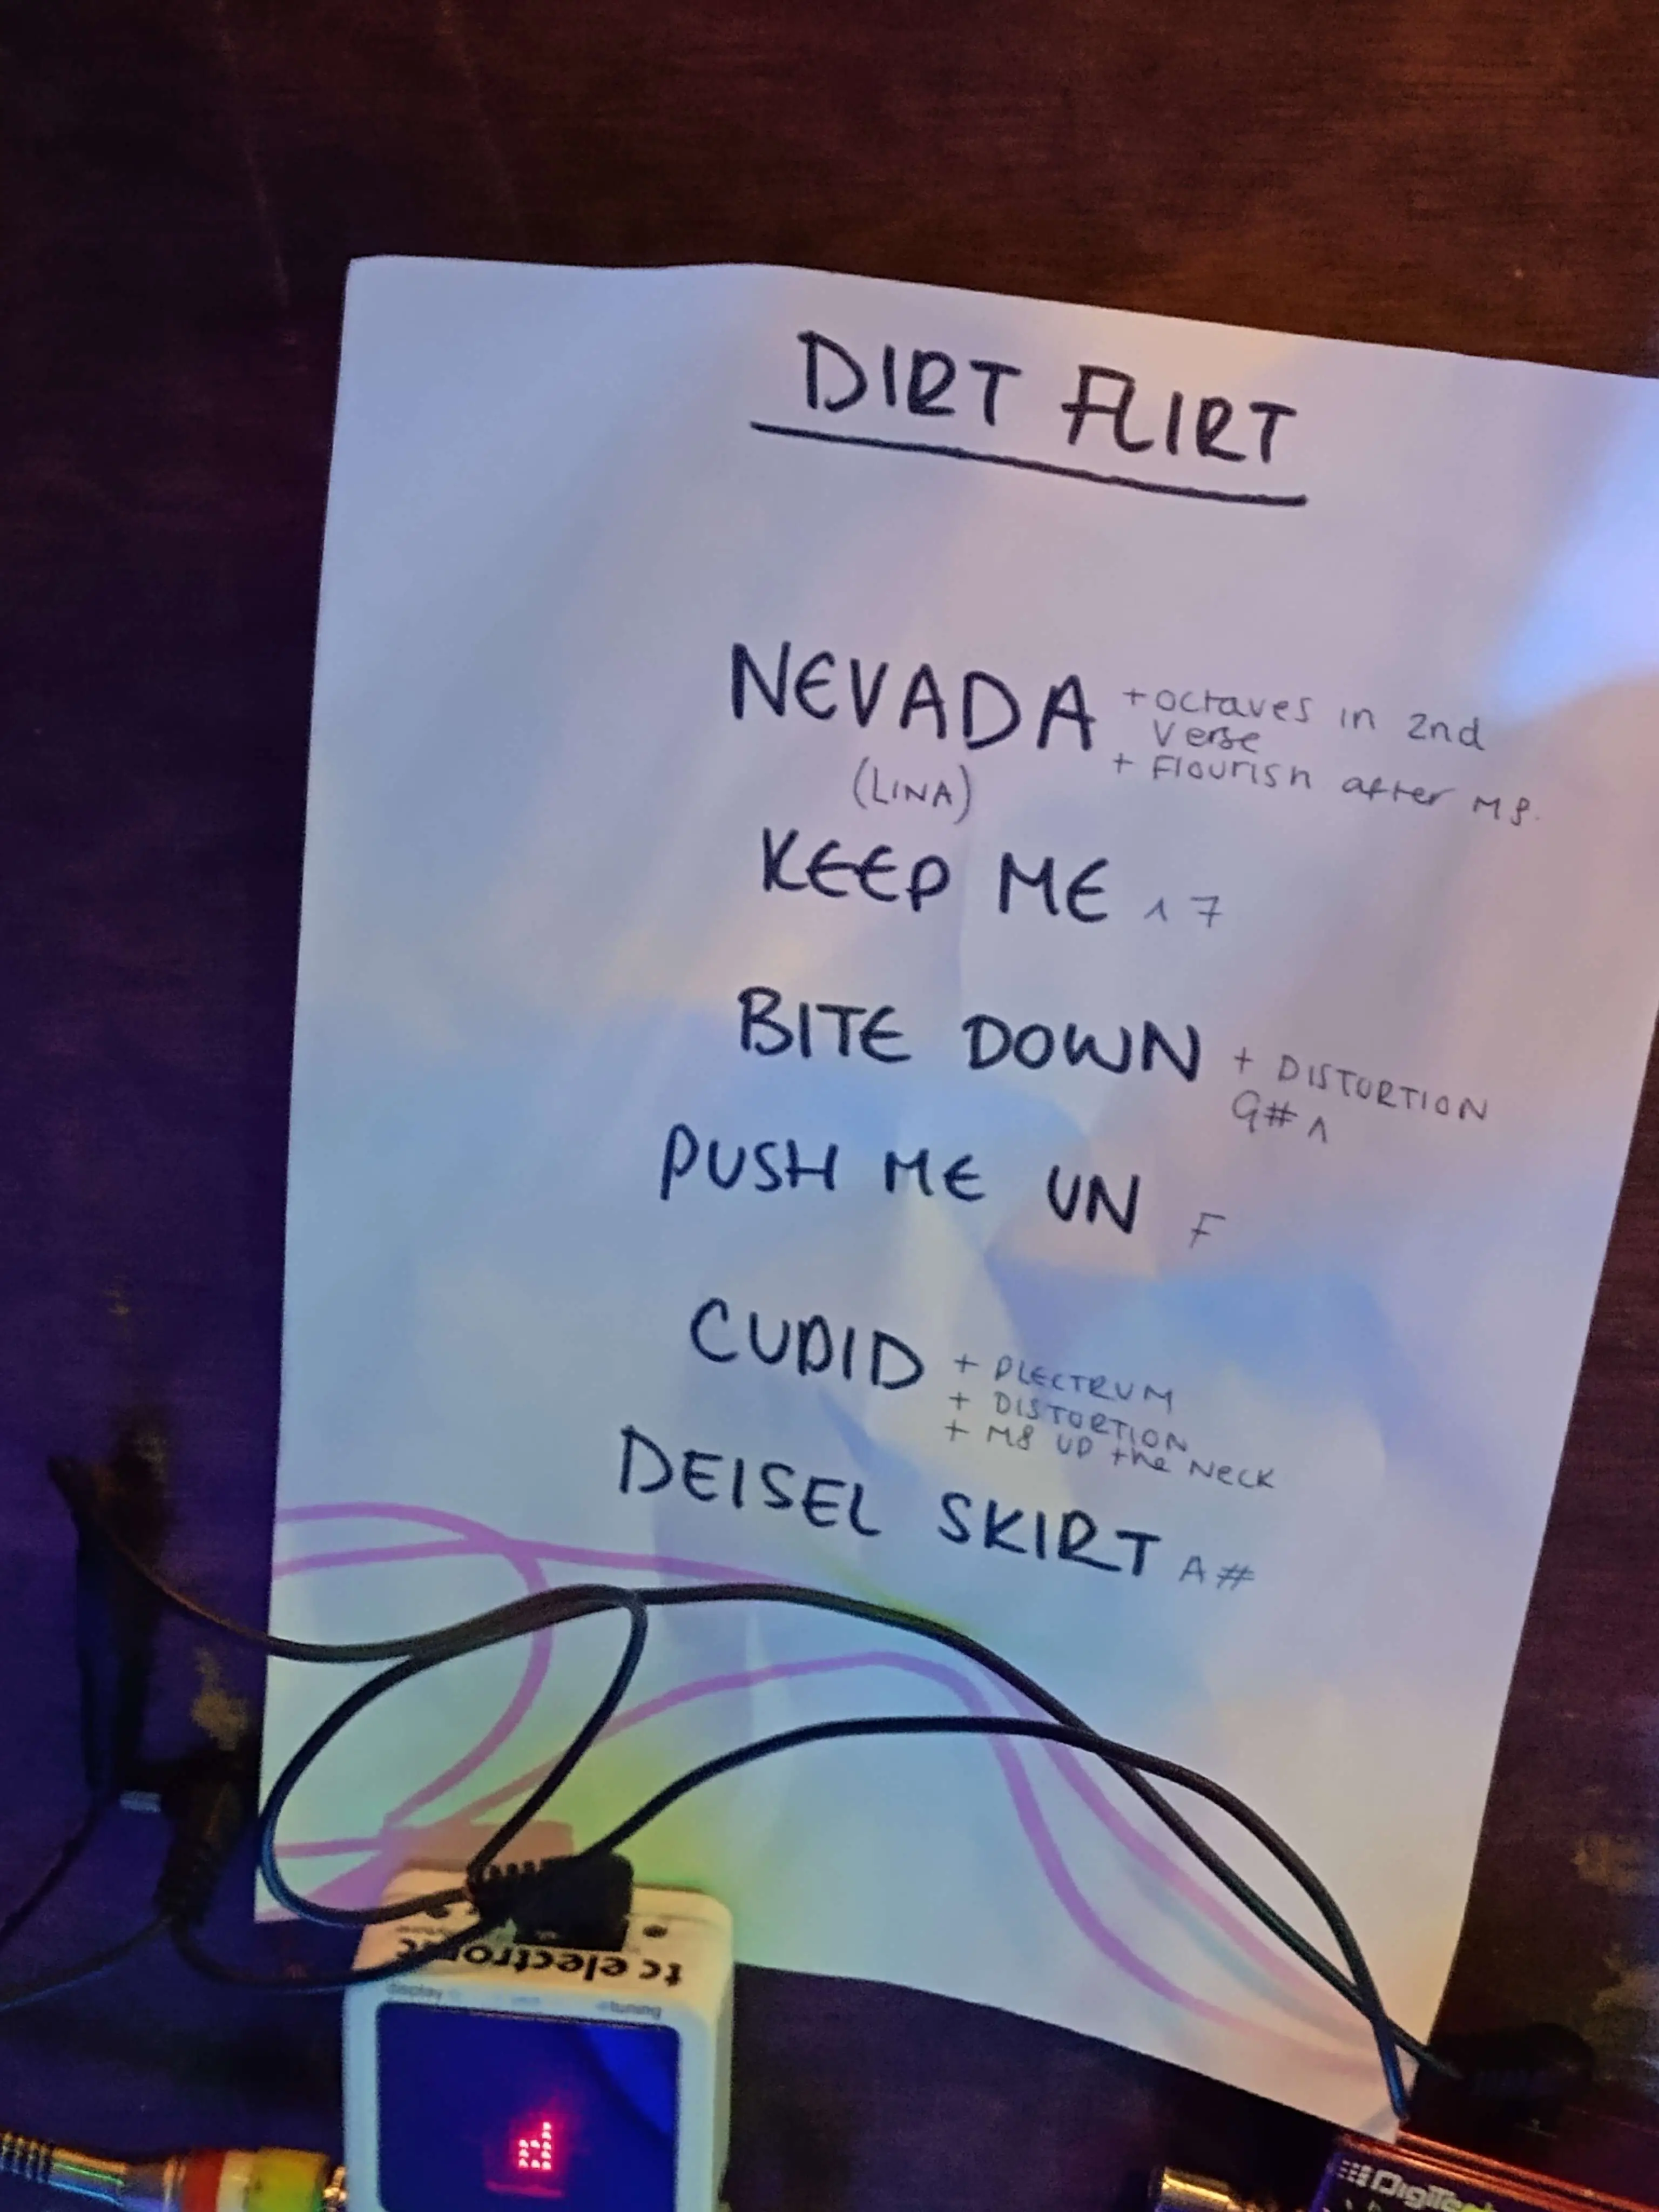 DIRT FLIRT
NEVADA + octaves in 2nd
verse
+ flourish after M8.
(LINA)
KEEP ME ^ 7
BITE DOWN + DISTORTION
G# ^
PUSH ME UN F
CUPID + PLECTRUM
+ DISTORTION
+ M8 UP the NECK
DEISEL SKIRT A#
tc electronic
display
tuning
d